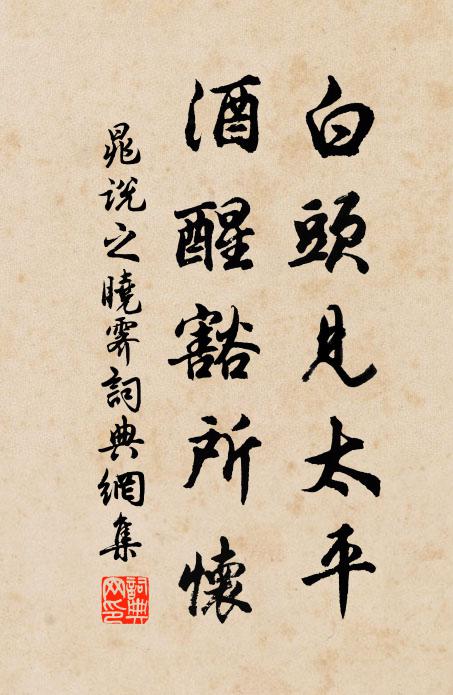 白頭見太平
酒醒豁所懷
晁說之曉霽詞典網集
詞典网印